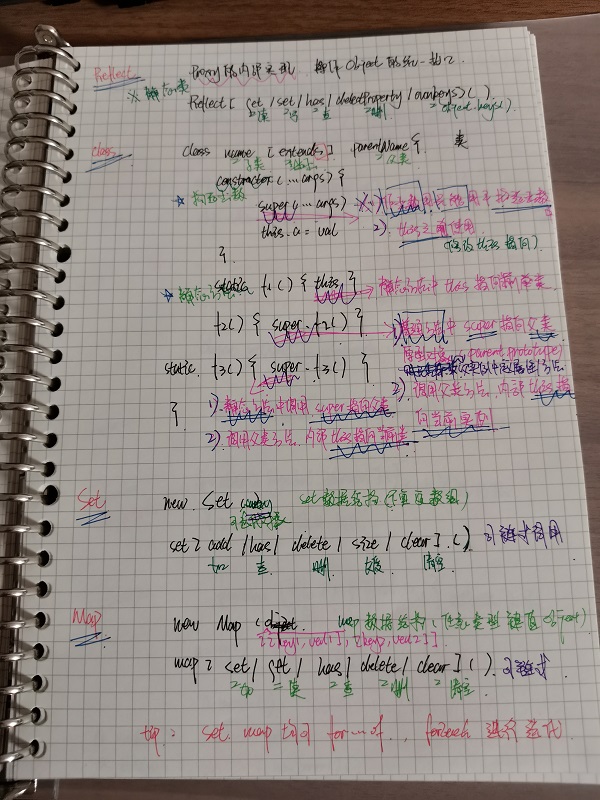 Reflect Proxy的内部实现 操作Object的统一接口
※ 静态类
Reflect [ get / set / has / deleteProperty / ownkeys ] ( ).
读 写 查 删 object.keys()
class class name [ extends ] parentName { 类
子类 父类
constructor (...args) {
☆ 构造函数 super (...args)
this.a = val
2). this之前使用
(修改this指向)
}
☆ 静态方法 static f1() { this }
静态方法中 this 指向
f2() { super.f2() } 1) 普通方法中 super 指向父类
原型对象 (parent.prototype)
static f3() { super.f3() }
2). 调用父类方法, 内部this指
向当前实例
} 1). 静态方法中调用 super 指向父类
2). 调用父类方法, 内部 this 指向
Set new Set set数据结构 (不重复数组)
set [ add / has / delete / size / clear ] ( ) 可链式调用
加 查 删 长度 清空
Map new Map ( map 数据结构 (任意类型键值 object)
[[key1, val1], [key2, val2]]
map [ set / get / has / delete / clear ] ( ). 可链式
加 读 查 删 清空
tip: set. map 均可 for...of.., forEach 进行迭代.